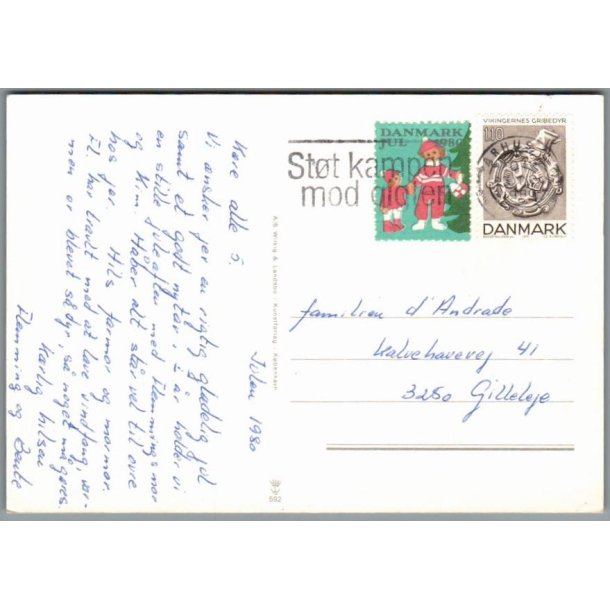 Julen 1980
Kære alle 5.
Vi ønsker jer en rigtig glædelig jul
samt et godt nytår, i år holder vi
en stille juleaften med Flemmings mor
og Kim. Håber alt står vel til ovre
hos jer. Hils farmor og mormor.
Fl. har travlt med at lave vindfang, var-
men er blevet så dyr, så noget må gøres.
Kærlig hilsen
Flemming og Bente
A/S Wiinig & Landsbo Kunstforlag - København
592
DANMARK
JUL 1980
Støt kampen
mod gigten
VIKINGERNES GRIBEDYR
110
DANMARK
familien d'Andrade
Kalvehavevej 41
3250 Gilleleje